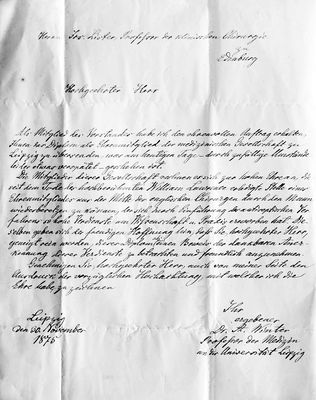 Herrn Jos. Lister, Professor der klinischen Chirurgie
zu
Edinburg
Hochgeehrter Herr
Als Mitglied des Vorstandes habe ich den ehrenvollen Auftrag erhalten,
Ihnen das Diplom als Ehrenmitglied der medizinischen Gesellschaft zu
Leipzig zu übersenden, was am heutigen Tage – durch zufällige Umstände
leider etwas verspätet – geschehen ist.
Die Mitglieder dieser Gesellschaft es sich zur hohen Ehre an, die
seit dem Tode des hochberühmten William Lawrence erledigte Stelle eines
Ehrenmitgliedes aus der Welt der englischen Chirurgen durch den Mann
wiederbesetzen zu können, der sich durch Einführung des antiseptischen Ver-
fahrens so hohe Verdienste um Wissenschaft und Praxis erworben hat. Die-
selben geben sich der freudigen Hoffnung hin, dass Sie, hochgeehrter Herr,
geneigt sein werden, dieses Diplom einen Beweis der dankbaren Aner-
kennung Ihrer Verdienste zu betrachten und freundlich anzunehmen.
Genehmigen Sie, Hochgeehrter Herr, auch von meiner Seite den
Ausdruck der vorzüglichen Hochachtung, mit welcher ich die
Ehre habe, zu zeichnen
Leipzig
den 30. November
1875
Ihr
ergebener
Dr. A. Winter
Professor der Medizin
an der Universität Leipzig